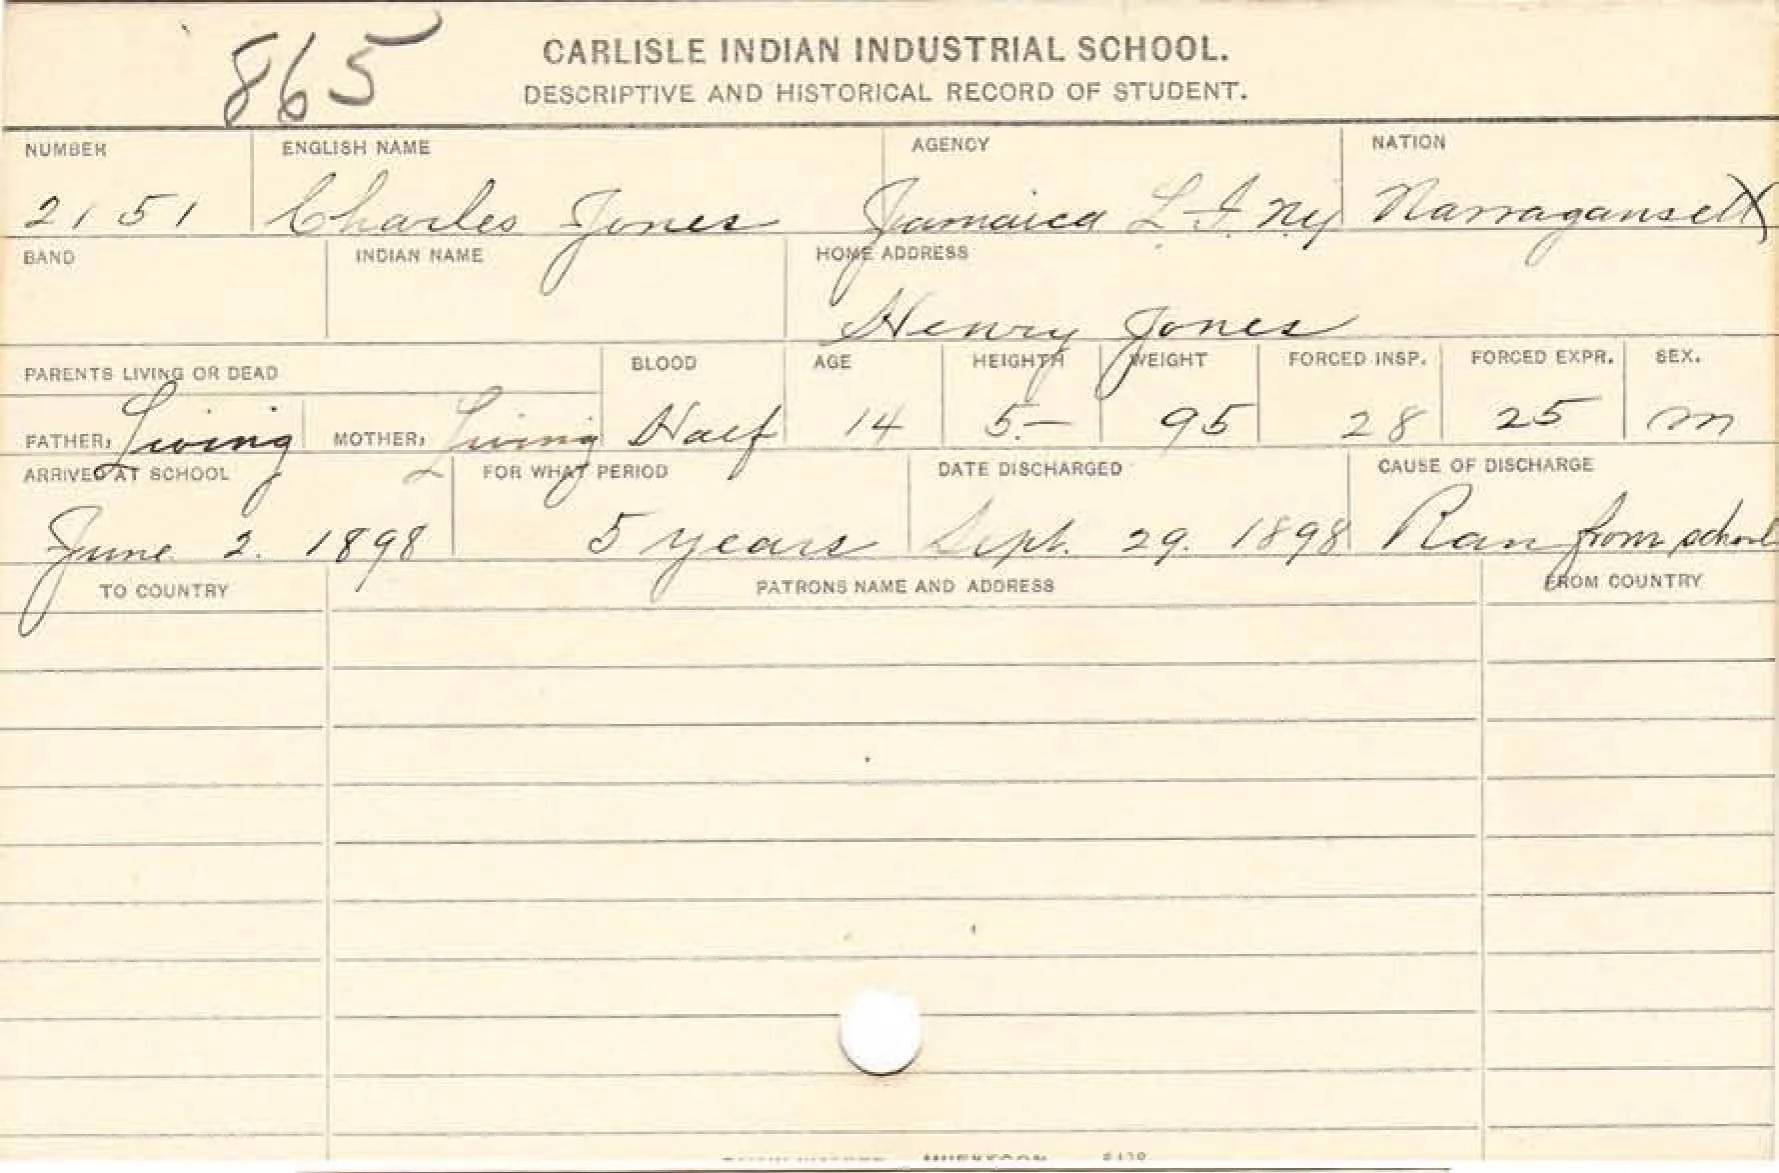 865
CARLISLE INDIAN INDUSTRIAL SCHOOL.
DESCRIPTIVE AND HISTORICAL RECORD OF STUDENT.
NUMBER ENGLISH NAME AGENCY NATION
2151 Charles Jones Jamaica L. I. NY Narragansett
BAND INDIAN NAME HOME ADDRESS
Henry Jones
PARENTS LIVING OR DEAD BLOOD AGE HEIGHTH WEIGHT FORCED INSP. FORCED EXPR. SEX.
FATHER, Living MOTHER, Living Half 14 5.— 95 28 25 M
ARRIVED AT SCHOOL FOR WHAT PERIOD DATE DISCHARGED CAUSE OF DISCHARGE
June 2. 1898 5 years Sept. 29. 1898 Ran from school
TO COUNTRY PATRONS NAME AND ADDRESS FROM COUNTRY